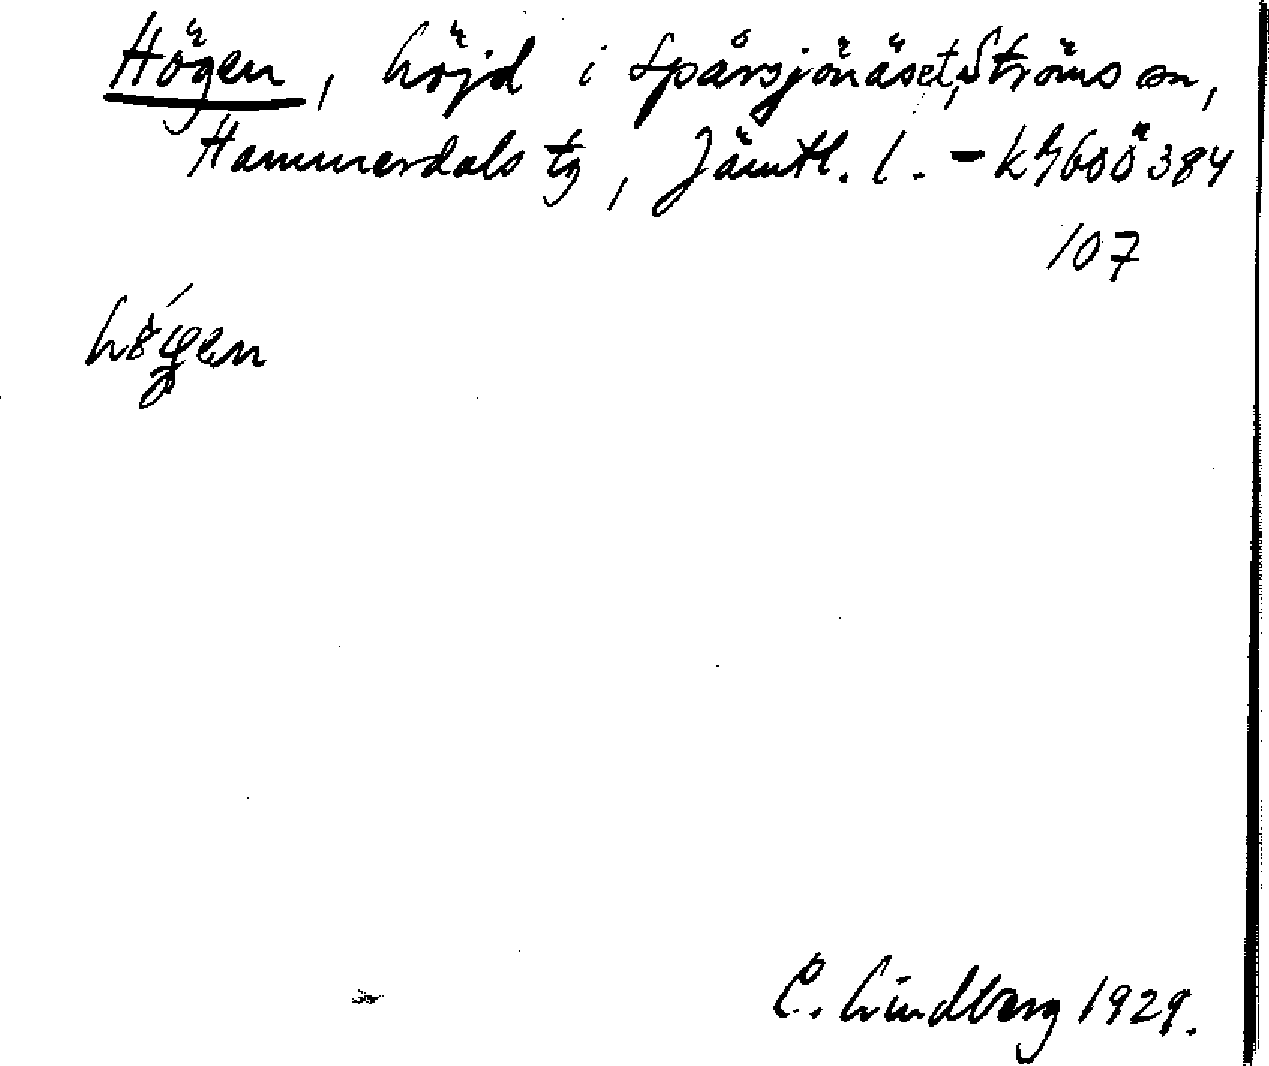 Högen, höjd i Spårsjönäset, Ströms sn,
Hammerdals tg, Jämtl. l. -
107
C. Lindberg 1929.